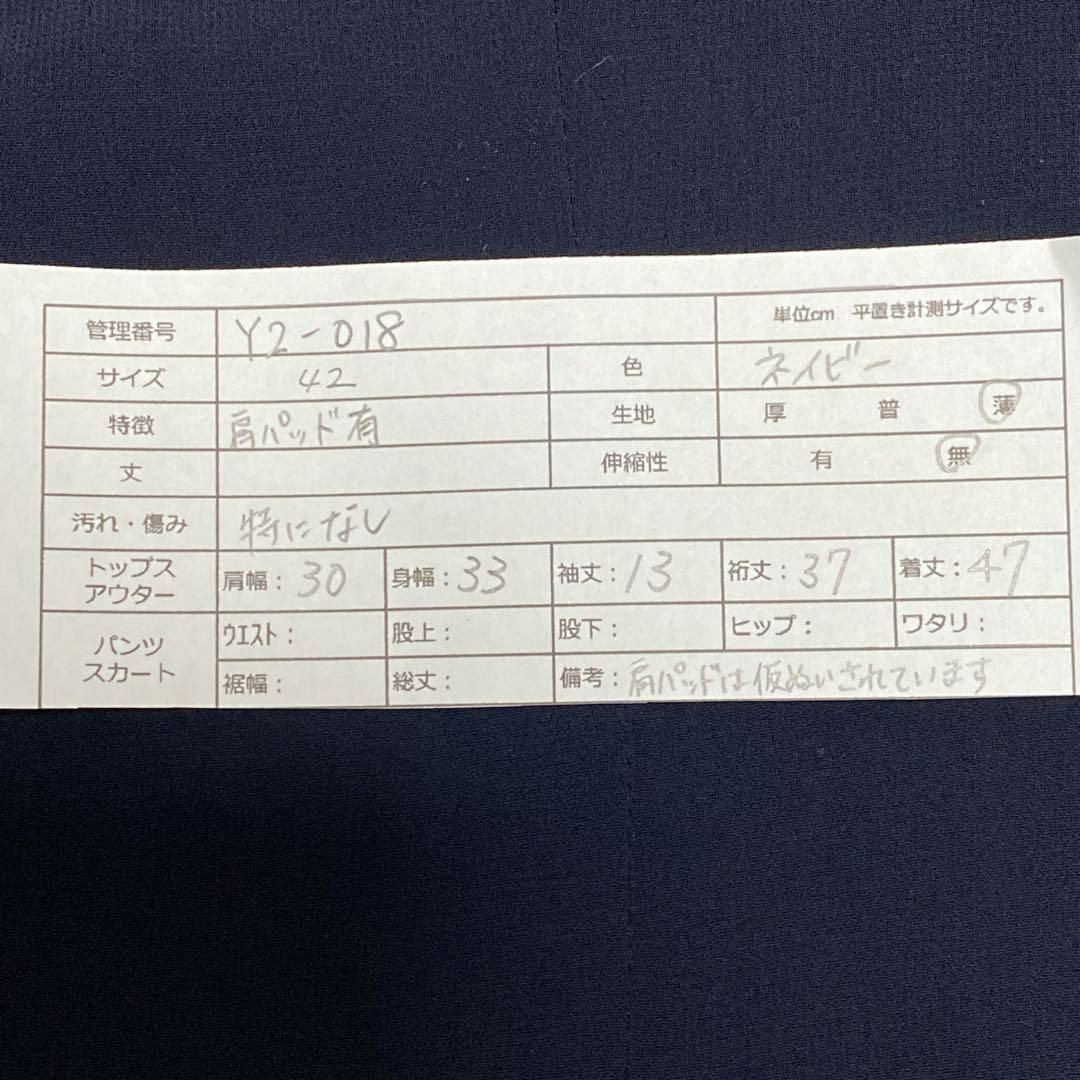 管理番号 Y2-018 単位cm 平置き計測サイズです。
サイズ 42 色 ネイビー
特徴 肩パッド有 生地 厚 普 薄
丈 伸縮性 有 無
汚れ・傷み 特になし
トップス アウター 肩幅：30 身幅：33 袖丈：13 裄丈：37 着丈：47
パンツ スカート ウエスト： 股上： 股下： ヒップ： ワタリ：
裾幅： 総丈： 備考：肩パッドは仮ぬいされています